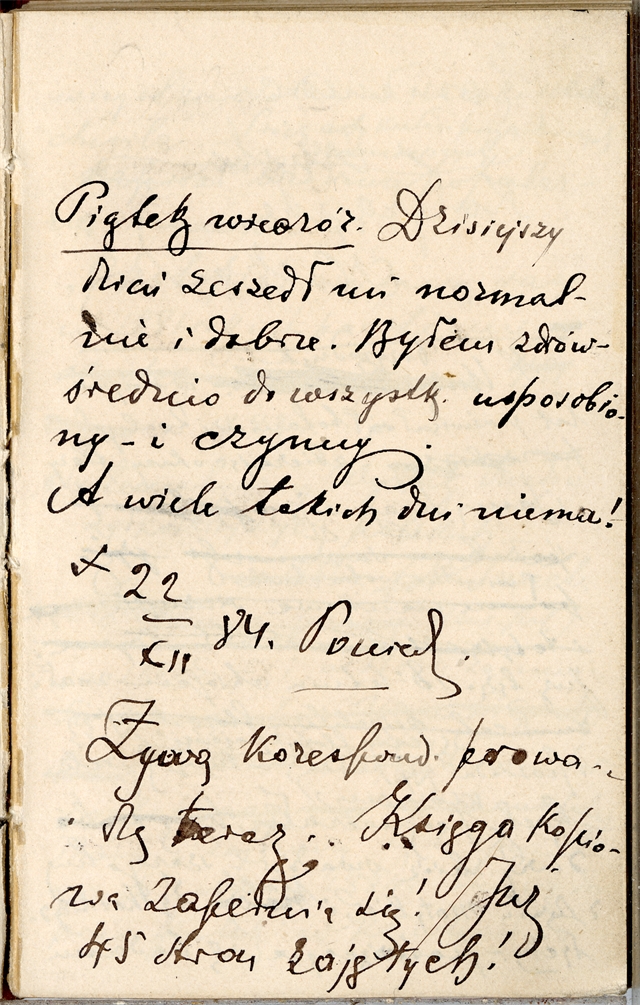 Piątek wieczór. Dzisiejszy
dzień zeszedł mi normal-
nie i dobrze. Byłem zdrów-
średnio do wszystk. usposobio-
ny - i czynny.
A wiele takich dni niema!
x 22/XII 84. Poniedz.
Żywą korespond. prowa-
dzę teraz. Księga kopio-
wa zapełnia się! Już
45 stron zajętych!